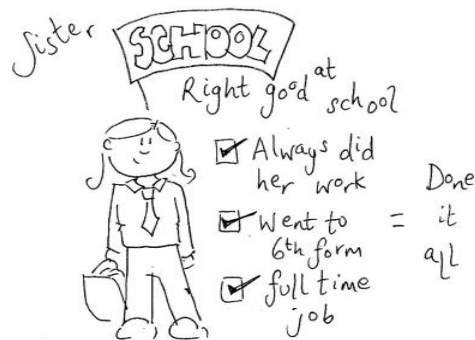 Sister
SCHOOL
Right good at
school
Always did
her work
Went to
6th form
full time
job
= Done
it
all